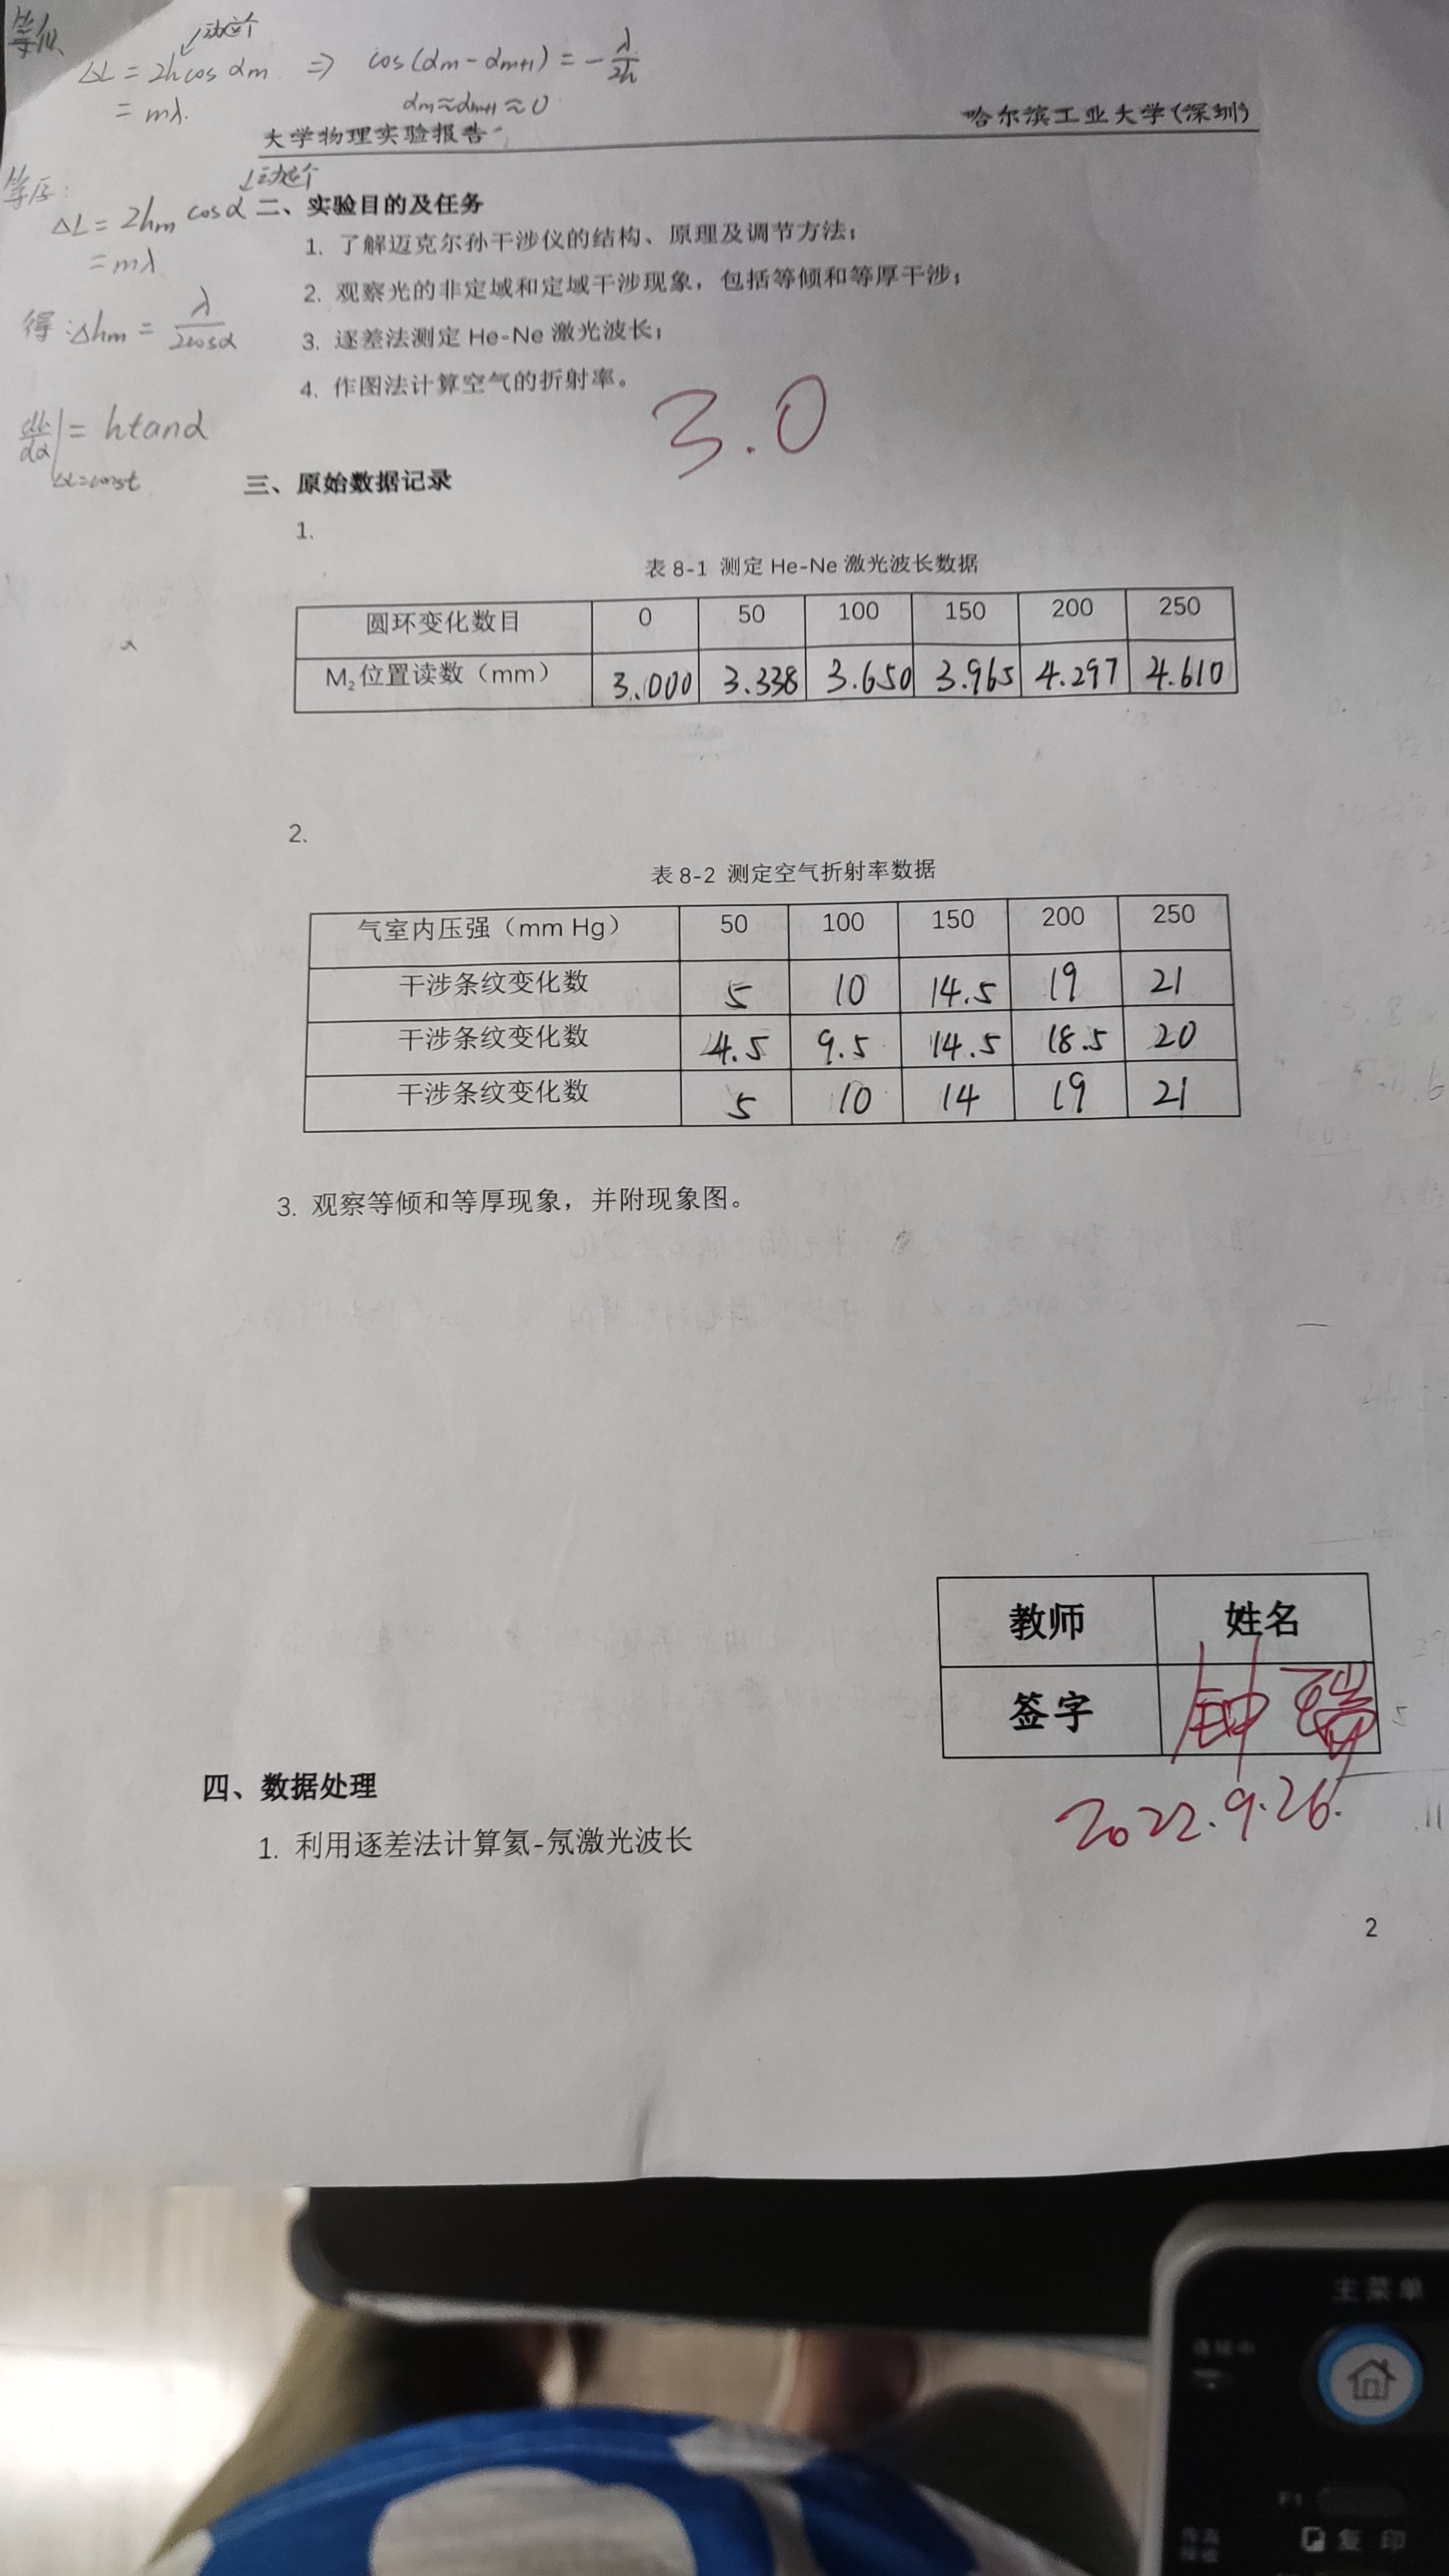 等倾
动这个
ΔL = 2h cos αm ⇒ cos(αm - αm+1) = - λ/2h
= mλ.
αm ≈ αm+1 ≈ 0
大学物理实验报告 哈尔滨工业大学(深圳)
等厚:
动这个
ΔL = 2hm cos α
= mλ
得: Δhm = λ/2cosα
dh/dα|ΔL=const = h tan α
二、实验目的及任务
1. 了解迈克尔孙干涉仪的结构、原理及调节方法;
2. 观察光的非定域和定域干涉现象,包括等倾和等厚干涉;
3. 逐差法测定 He-Ne 激光波长;
4. 作图法计算空气的折射率。
3.0
三、原始数据记录
1.
表 8-1 测定 He-Ne 激光波长数据
圆环变化数目 0 50 100 150 200 250
M₂位置读数(mm) 3.000 3.338 3.650 3.965 4.297 4.610
2.
表 8-2 测定空气折射率数据
气室内压强(mm Hg) 50 100 150 200 250
干涉条纹变化数 5 10 14.5 19 21
干涉条纹变化数 4.5 9.5 14.5 18.5 20
干涉条纹变化数 5 10 14 19 21
3. 观察等倾和等厚现象,并附现象图。
教师 姓名
签字 钟瑞
2022.9.26.
四、数据处理
1. 利用逐差法计算氦-氖激光波长
2
主菜单
F1
复印